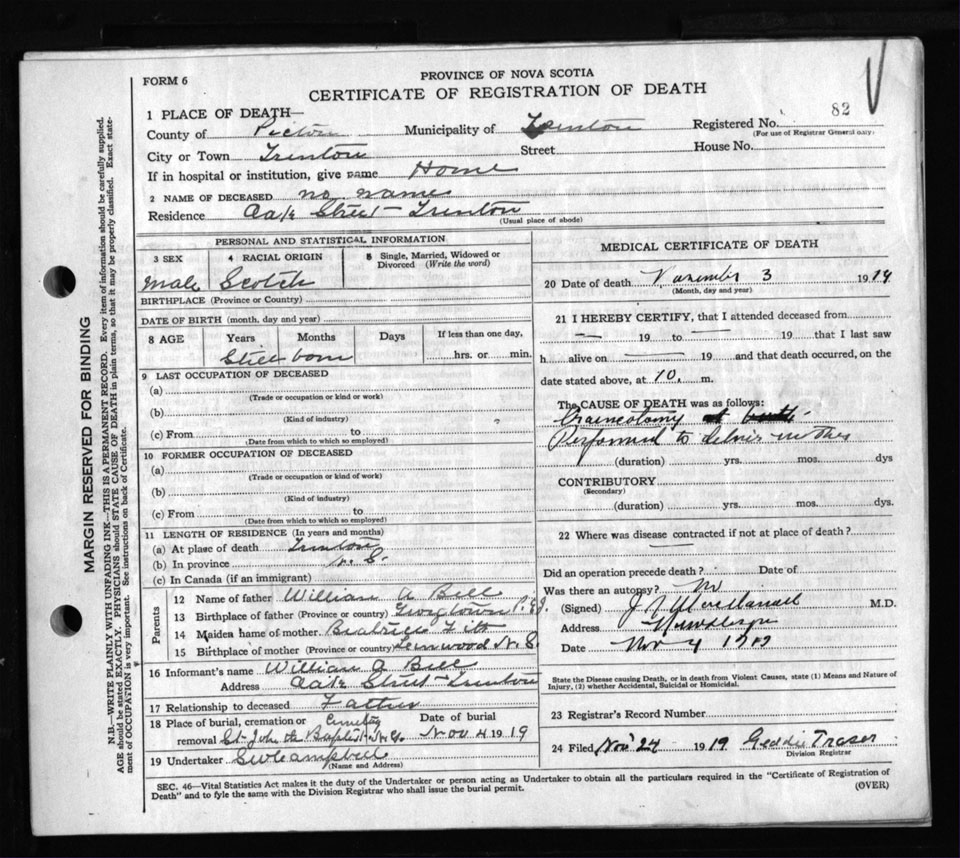 FORM 6
PROVINCE OF NOVA SCOTIA
CERTIFICATE OF REGISTRATION OF DEATH
82
1 PLACE OF DEATH—
County of Pictou Municipality of Trenton Registered No.
(For use of Registrar General only)
City or Town Trenton Street House No.
If in hospital or institution, give name Home
2 NAME OF DECEASED no name
Residence Oak Street - Trenton
(Usual place of abode)
PERSONAL AND STATISTICAL INFORMATION
3 SEX 4 RACIAL ORIGIN 5 Single, Married, Widowed or Divorced (Write the word)
male Scotch
BIRTHPLACE (Province or Country)
DATE OF BIRTH (month, day and year)
8 AGE Years Months Days If less than one day,
Still born hrs. or min.
9 LAST OCCUPATION OF DECEASED
(a)
(Trade or occupation or kind or work)
(b)
(Kind of industry)
(c) From to
(Date from which to which so employed)
10 FORMER OCCUPATION OF DECEASED
(a)
(Trade or occupation or kind or work)
(b)
(Kind of industry)
(c) From to
(Date from which to which so employed)
11 LENGTH OF RESIDENCE (In years and months)
(a) At place of death Trenton
(b) In province N. S.
(c) In Canada (if an immigrant)
Parents
12 Name of father William A Bell
13 Birthplace of father (Province or country) P.E.I.
14 Maiden name of mother
15 Birthplace of mother (Province or country) N. S.
16 Informant's name William A Bell
Address Oak Street - Trenton
17 Relationship to deceased Father
18 Place of burial, cremation or removal Cemetery St John the Baptist N.G. Date of burial Nov 4 1919
19 Undertaker Campbell
(Name and Address)
MEDICAL CERTIFICATE OF DEATH
20 Date of death November 3 1919
(Month, day and year)
21 I HEREBY CERTIFY, that I attended deceased from
— 19 to — 19 that I last saw
h alive on — 19 and that death occurred, on the
date stated above, at 10. m.
The CAUSE OF DEATH was as follows:
Craineotomy at birth
Performed to deliver mother
(duration) yrs. mos. dys
CONTRIBUTORY
(Secondary)
(duration) yrs. mos. dys.
22 Where was disease contracted if not at place of death?
—
Did an operation precede death? Date of
Was there an autopsy? No
(Signed) M.D.
Address
Date Nov 4 1919
State the Disease causing Death, or in death from Violent Causes, state (1) Means and Nature of
Injury, (2) whether Accidental, Suicidal or Homicidal.
23 Registrar's Record Number
24 Filed Nov 24 1919 Geddie Fraser
Division Registrar
SEC. 46—Vital Statistics Act makes it the duty of the Undertaker or person acting as Undertaker to obtain all the particulars required in the "Certificate of Registration of
Death" and to fyle the same with the Division Registrar who shall issue the burial permit.
(OVER)
MARGIN RESERVED FOR BINDING
N.B.—WRITE PLAINLY WITH UNFADING INK—THIS IS A PERMANENT RECORD. Every item of information should be carefully supplied.
AGE should be stated EXACTLY. PHYSICIANS should STATE CAUSE OF DEATH in plain terms, so that it may be properly classified. Exact state-
ment of OCCUPATION is very important. See instructions on back of Certificate.